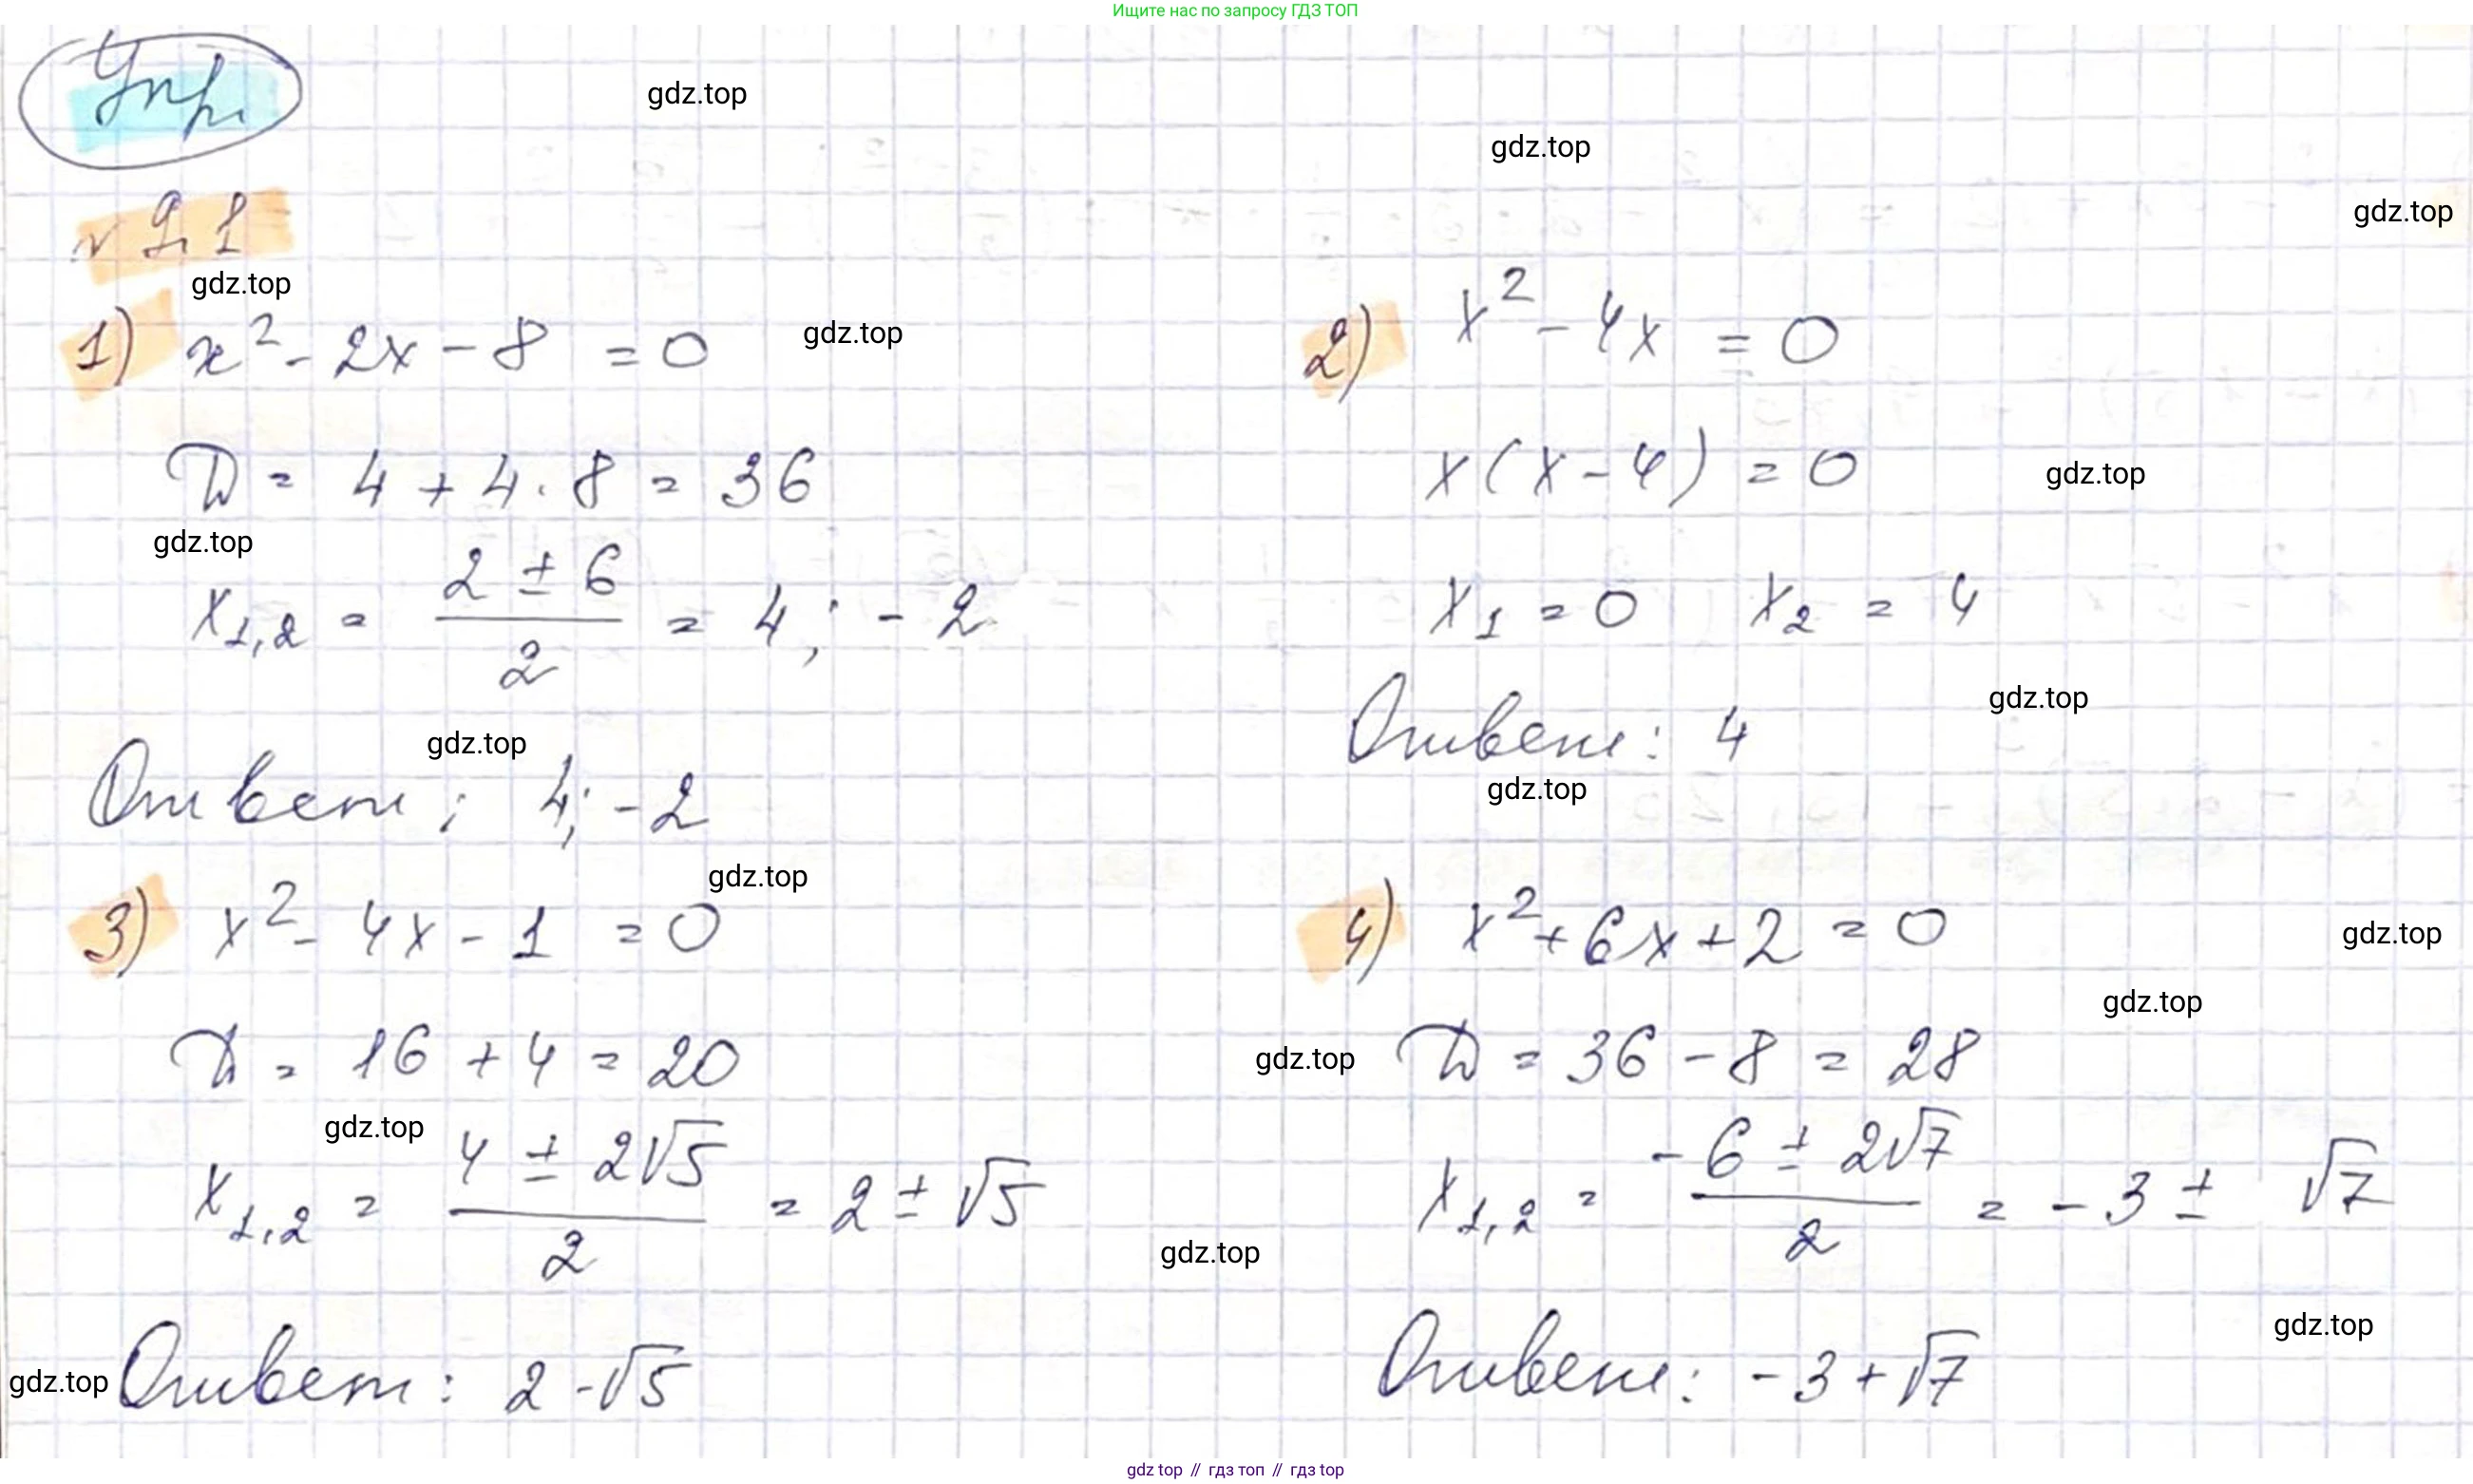 Ищите нас по запросу ГДЗ ТОП
Упр.
gdz.top
gdz.top
gdz.top
№ 9.1
gdz.top
1) x² - 2x - 8 = 0
gdz.top
D = 4 + 4 · 8 = 36
gdz.top
x₁,₂ = (2 ± 6)/2 = 4; -2
gdz.top
Ответ: 4; -2
2) x² - 4x = 0
x(x - 4) = 0
gdz.top
x₁ = 0 x₂ = 4
gdz.top
Ответ: 4
gdz.top
gdz.top
3) x² - 4x - 1 = 0
D = 16 + 4 = 20
gdz.top
x₁,₂ = (4 ± 2√5)/2 = 2 ± √5
gdz.top
gdz.top
Ответ: 2 - √5
4) x² + 6x + 2 = 0
gdz.top
gdz.top
gdz.top
D = 36 - 8 = 28
x₁,₂ = (-6 ± 2√7)/2 = -3 ± √7
gdz.top
Ответ: -3 + √7
gdz top // гдз топ // гдз top